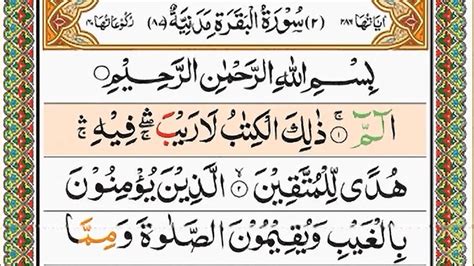 اٰيَاتُهَا ٢٨٦ (٢) سُوْرَةُ الْبَقَرَةِ مَدَنِيَّةٌ (٨٧) رُكُوْعَاتُهَا ٤٠
بِسْمِ اللّٰهِ الرَّحْمٰنِ الرَّحِيْمِ
الٓمّٓ ۚ‏﴿١﴾ ذٰلِكَ الْكِتٰبُ لَا رَيْبَ ۛۖۚ فِيْهِ ۛۚ
هُدًى لِّلْمُتَّقِيْنَ ۙ‏﴿٢﴾ الَّذِيْنَ يُؤْمِنُوْنَ
بِالْغَيْبِ وَيُقِيْمُوْنَ الصَّلٰوةَ وَمِمَّا